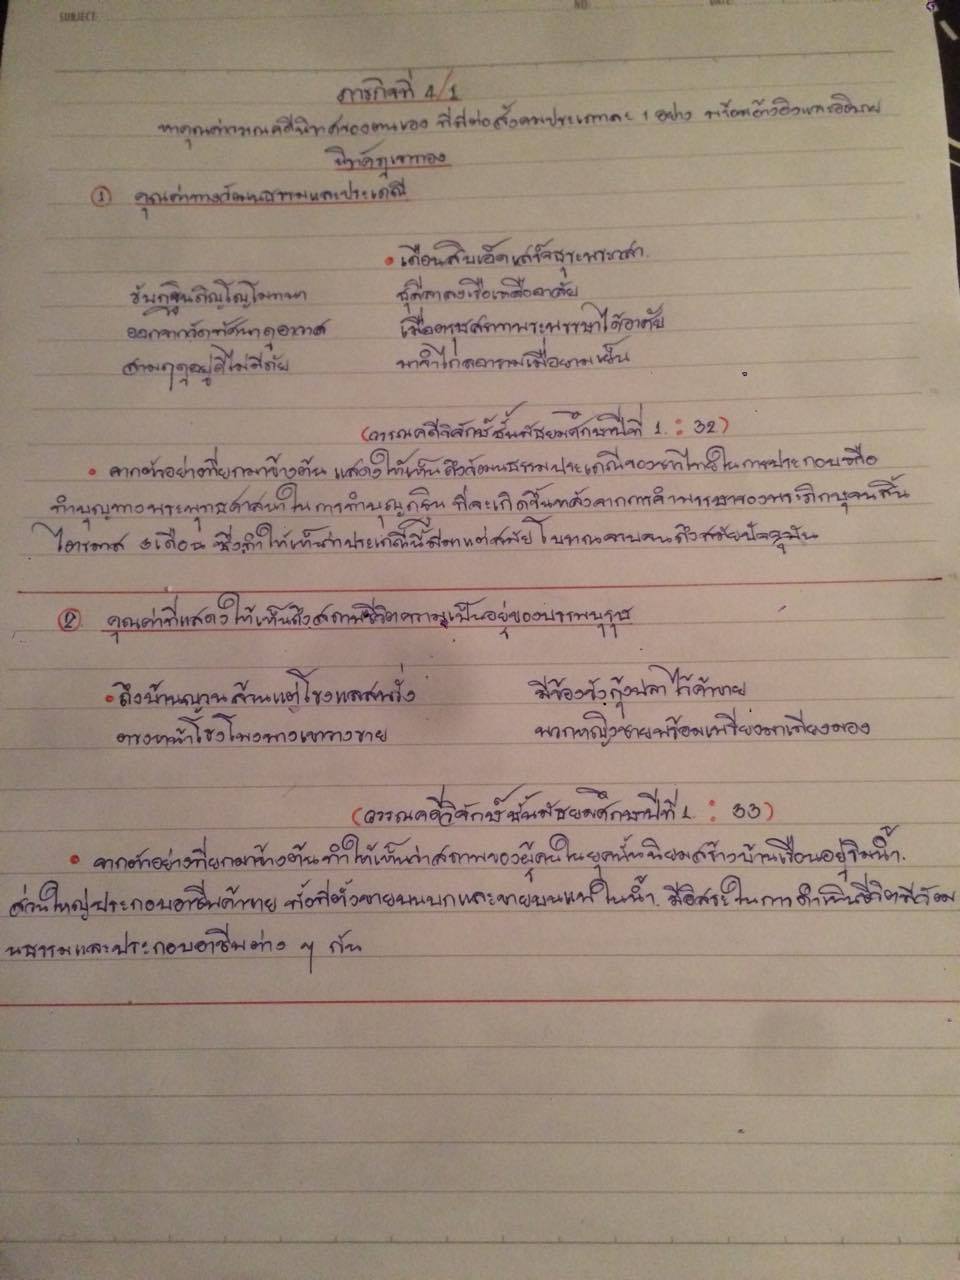 SUBJECT NO. DATE
ภารกิจที่ 4/1
หาคุณค่าวรรณคดีนิราศของตนเอง ที่มีต่อสังคมประเภทละ 1 อย่าง พร้อมอ้างอิงและอธิบาย
นิราศภูเขาทอง
① คุณค่าทางวัฒนธรรมและประเพณี
• เดือนสิบเอ็ดเสร็จธุระพระวสา
รับกฐินภิญโญโมทนา ชุลีลาลงเรือเหลืออาลัย
ออกจากวัดทัศนาดูอาวาส เมื่อตรุษสารทพระพรรษาได้อาศัย
สามฤดูอยู่ดีไม่มีภัย มาจำไกลอารามเมื่อยามเย็น
(วรรณคดีวิจักษ์ชั้นมัธยมศึกษาปีที่ 1 : 32)
• จากตัวอย่างที่ยกมาข้างต้น แสดงให้เห็นถึงวัฒนธรรมประเพณีของชาวไทยในการประกอบพิธี
ทำบุญทางพระพุทธศาสนาในการทำบุญกฐิน ที่จะเกิดขึ้นหลังจากการจำพรรษาของพระภิกษุจนสิ้น
ไตรมาส 3 เดือน ซึ่งทำให้เห็นว่าประเพณีนี้มีมาแต่สมัยโบราณจวบจนถึงสมัยปัจจุบัน
② คุณค่าที่แสดงให้เห็นถึงสภาพชีวิตความเป็นอยู่ของบรรพบุรุษ
• ถึงบ้านญวนล้วนแต่โรงแลสะพรั่ง มีข้องขังกุ้งปลาไว้ค้าขาย
ตรงหน้าโรงโพงพางเขาวางราย พวกหญิงชายพร้อมเพรียงมาเมียงมอง
(วรรณคดีวิจักษ์ชั้นมัธยมศึกษาปีที่ 1 : 33)
• จากตัวอย่างที่ยกมาข้างต้น ทำให้เห็นว่าสภาพของผู้คนในยุคนั้นนิยมสร้างบ้านเรือนอยู่ริมน้ำ
ส่วนใหญ่ประกอบอาชีพค้าขาย ทั้งที่ตั้งขายบนบกและขายบนแพในน้ำ มีอิสระในการดำเนินชีวิตมีวัฒ
นธรรมและประกอบอาชีพต่าง ๆ กัน